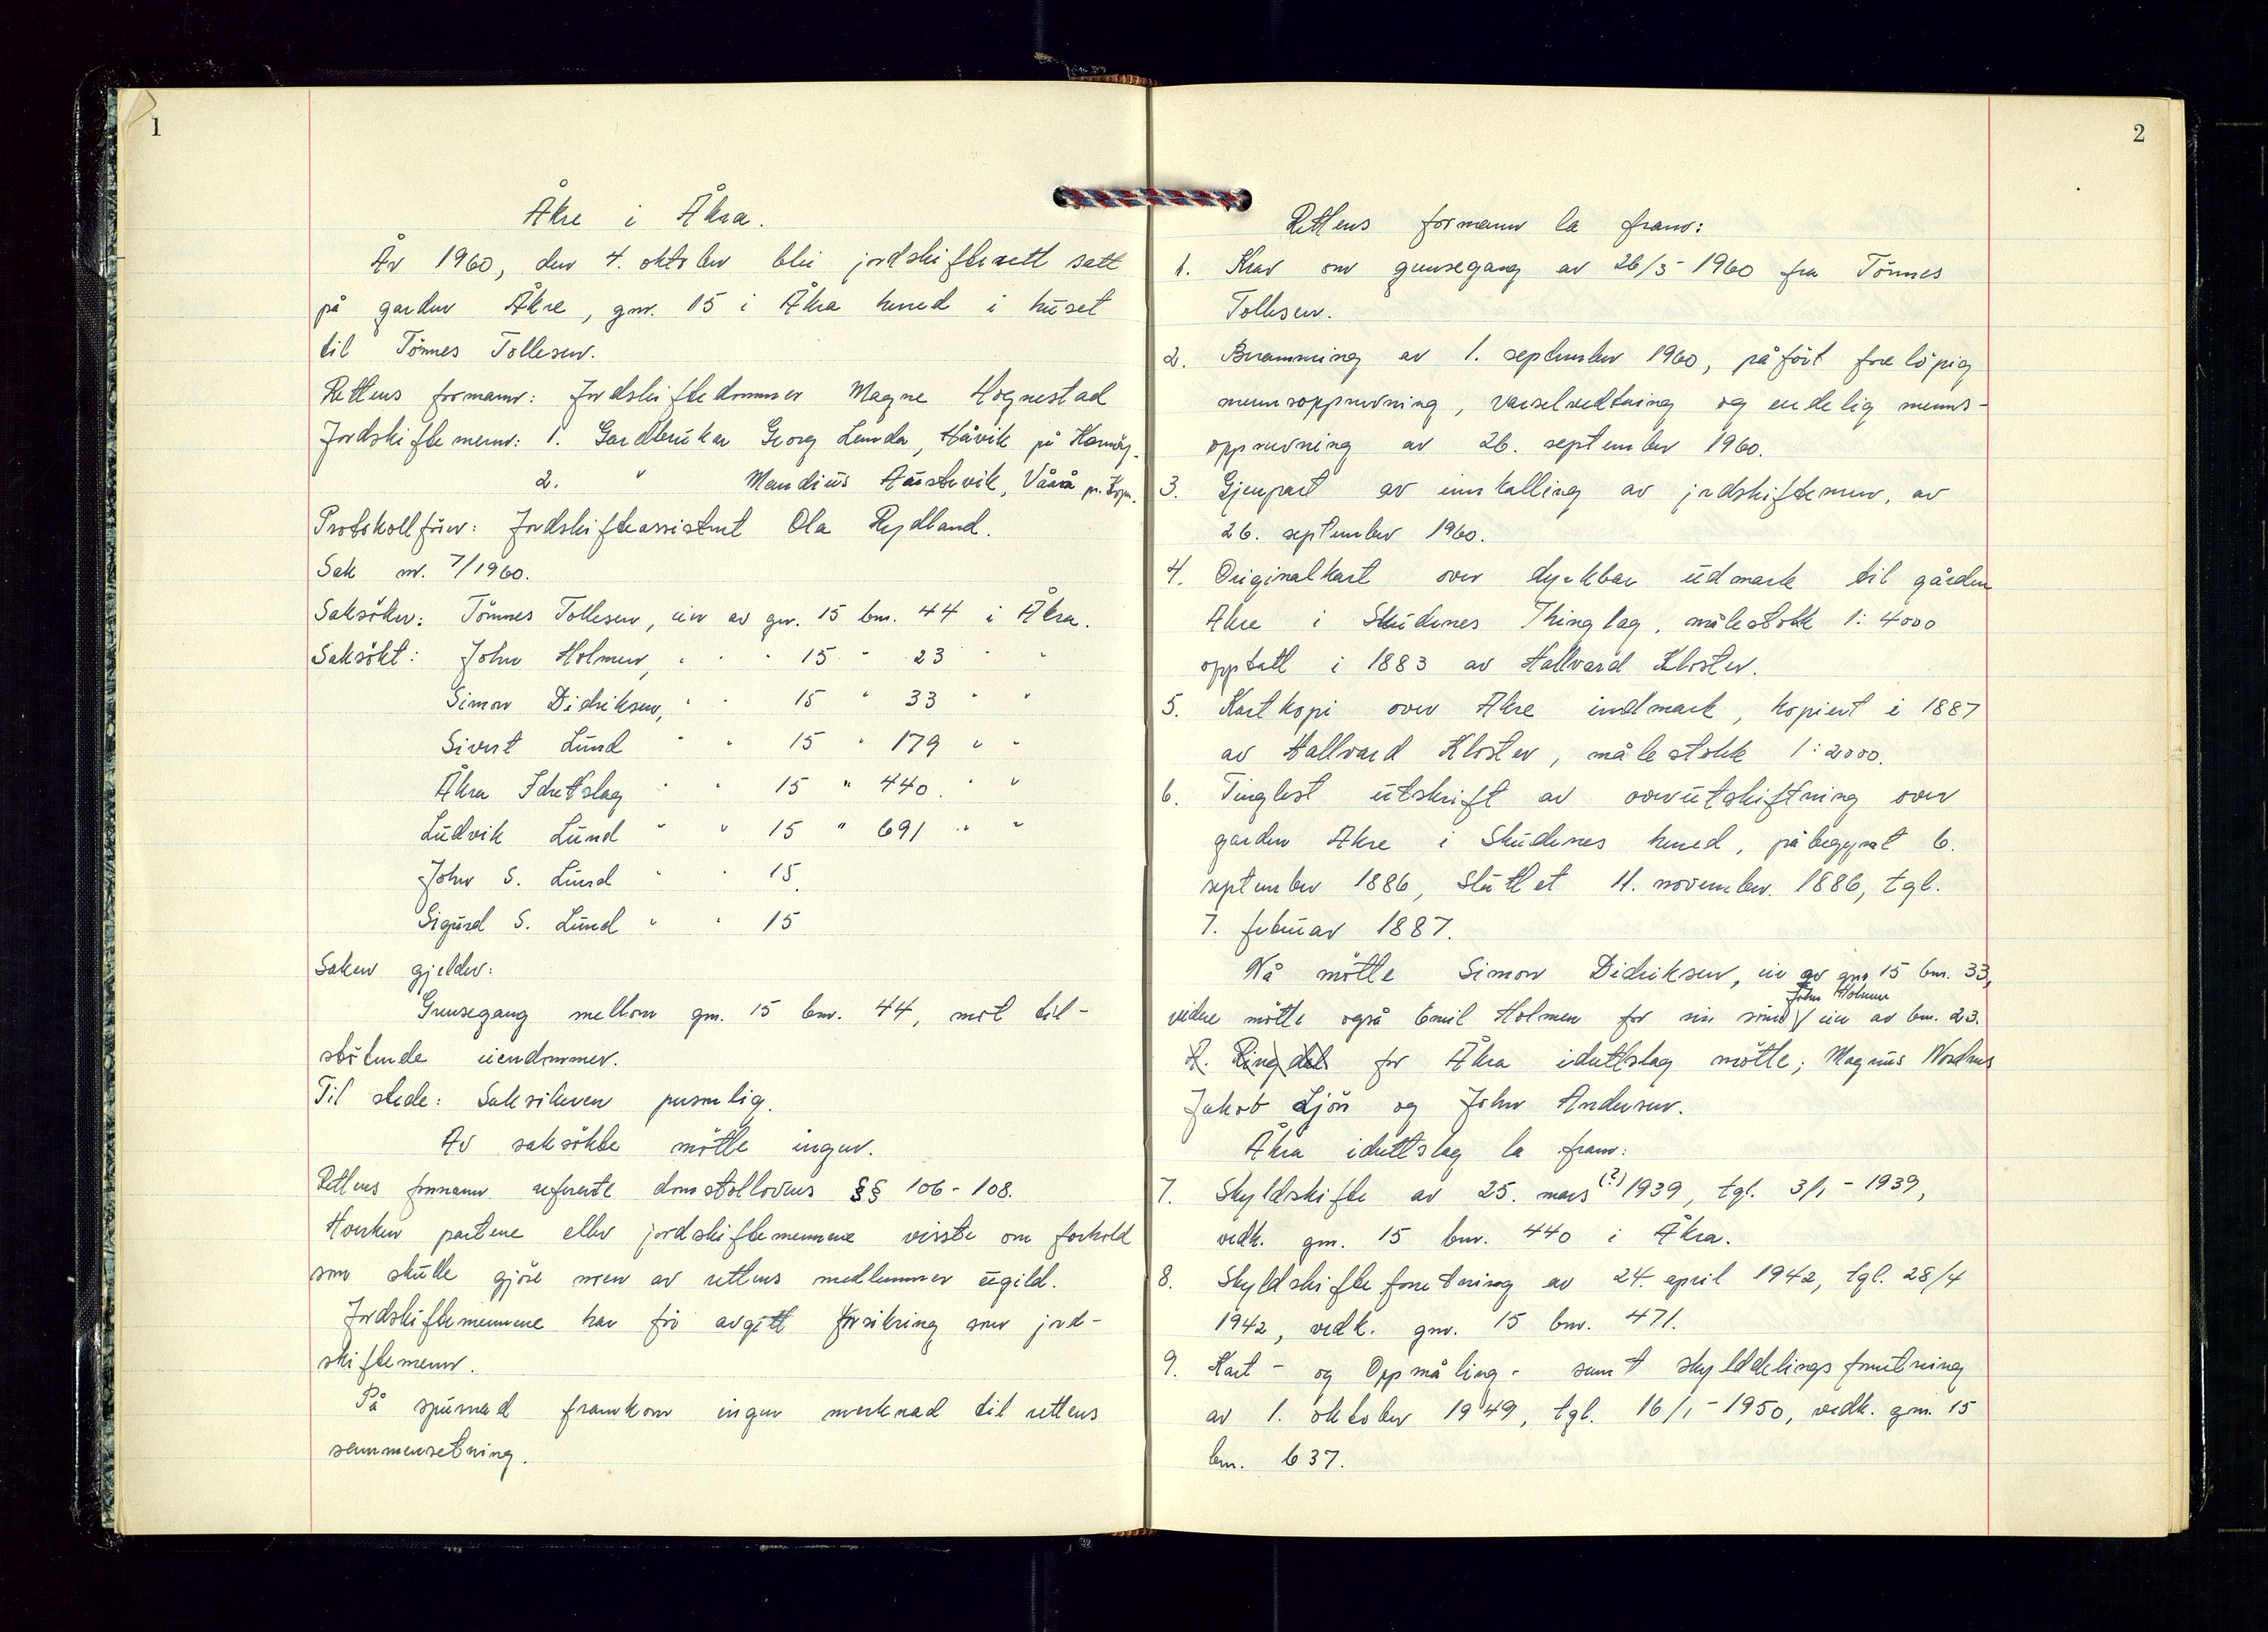 1
Åkre i Åkra.
År 1960, den 4. oktober ble jordskifterett satt
på garden Åkre, gnr. 15 i Åkra herred i huset
til Tönnes Tollesen.
Rettens formann: Jordskiftedommer Magne Hognestad
Jordskiftemenn: 1. Gardbruker Georg Lemda, Håvik på Karmöy.
2. " Mandius Austevik, Våra pr. Kopn.
Protokollförer: Jordskifteassistent Ola Rydland.
Sak nr. 7/1960.
Saksöker: Tönnes Tollesen, eier av gnr. 15 bnr. 44 i Åkra.
Saksökt: John Holmen, " " " 15 " 23 " "
Simon Didriksen, " " 15 " 33 " "
Sivert Lund " " 15 " 179 " "
Åkra Idrettslag " " 15 " 440. " "
Ludvik Lund " " 15 " 691 " "
John S. Lund " " 15.
Sigurd S. Lund " " 15
Saken gjelder:
Grensegang mellom gnr. 15 bnr. 44, mot til-
stötende eiendommer.
Til stede: Saksökeren personlig.
Av saksökte mötte ingen.
Rettens formann refererte domstollovens §§ 106-108.
Hverken partene eller jordskiftemennene visste om forhold
som skulle gjöre noen av rettens medlemmer ugild.
Jordskiftemennene har för avgitt forsikring som jord-
skiftemenn.
På spörsmål framkom ingen merknad til rettens
sammensetning.
2
Rettens formann la fram:
1. Krav om grensegang av 26/5-1960 fra Tönnes
Tollesen.
2. Beramming av 1. september 1960, påfört forelöpig
mennsoppnevning, varselvedtaing og endelig menns-
oppnevning av 26. september 1960.
3. Gjenpart av innkalling av jordskiftemenn, av
26. september 1960.
4. Originalkart over dyrkbar udmark til gården
Akre i Skudenes Thinglag, målestokk 1:4000
opptatt i 1883 av Hallvard Kloster.
5. Kartkopi over Akre indmark, kopiert i 1887
av Hallvard Kloster, målestokk 1:2000.
6. Tinglest utskrift av overutskiftning over
garden Akre i Skudenes herred, påbegynt 6.
september 1886, sluttet 11. november. 1886, tgl.
7. februar 1887.
Nå mötte Simon Didriksen, eier av gnr 15 bnr. 33,
videre mötte også Emil Holmen for sin sönn John Holmen eier av bnr. 23.
R. Ringdal for Åkra idrettslag mötte; Magnus Nordnes
Jakob Ljön og John Andersen.
Åkra idrettslag la fram:
7. Skyldskifte av 25. mars (?) 1939, tgl. 3/1-1939,
vedk. gnr. 15 bnr. 440 i Åkra.
8. Skyldskifteforretning av 24. april 1942, tgl. 28/4
1942, vedk. gnr. 15 bnr. 471.
9. Kart- og Oppmåling- samt skylddelingsforretning
av 1. oktober 1949, tgl. 16/1-1950, vedk. gnr. 15
bnr. 637.